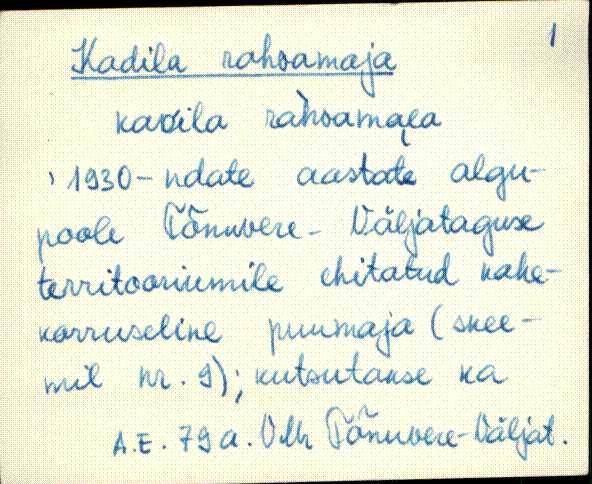 1
Kadila rahvamaja
kaδila rahvamaea
1930-ndate aastate algu-
poole Tõnuvere-Väljataguse
territooriumile ehitatud kahe-
korruseline puumaja (skee-
mil nr. 9); kutsutakse ka
A.E. 79 a. VMr Tõnuvere-Väljat.